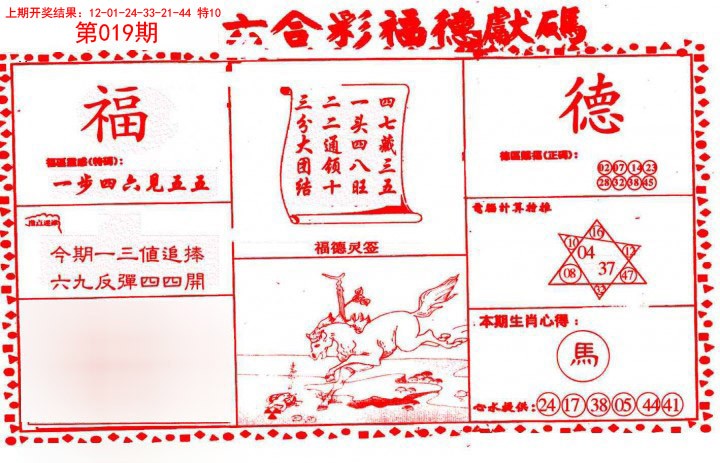 上期开奖结果: 12-01-24-33-21-44 特10
第019期
六合彩福德獻碼
福
福區靈感(特碼):
一步四六見五五
今期一三値追捧
六九反彈四四開
四七藏三五
一头四八旺
二二通领十
三分大团结
福德灵签
德
(正碼):
02 07 14 23
28 32 38 45
電腦計算特推
16
10 12
04
37
08 47
33
本期生肖心得:
馬
心水提供: 24 17 38 05 44 41